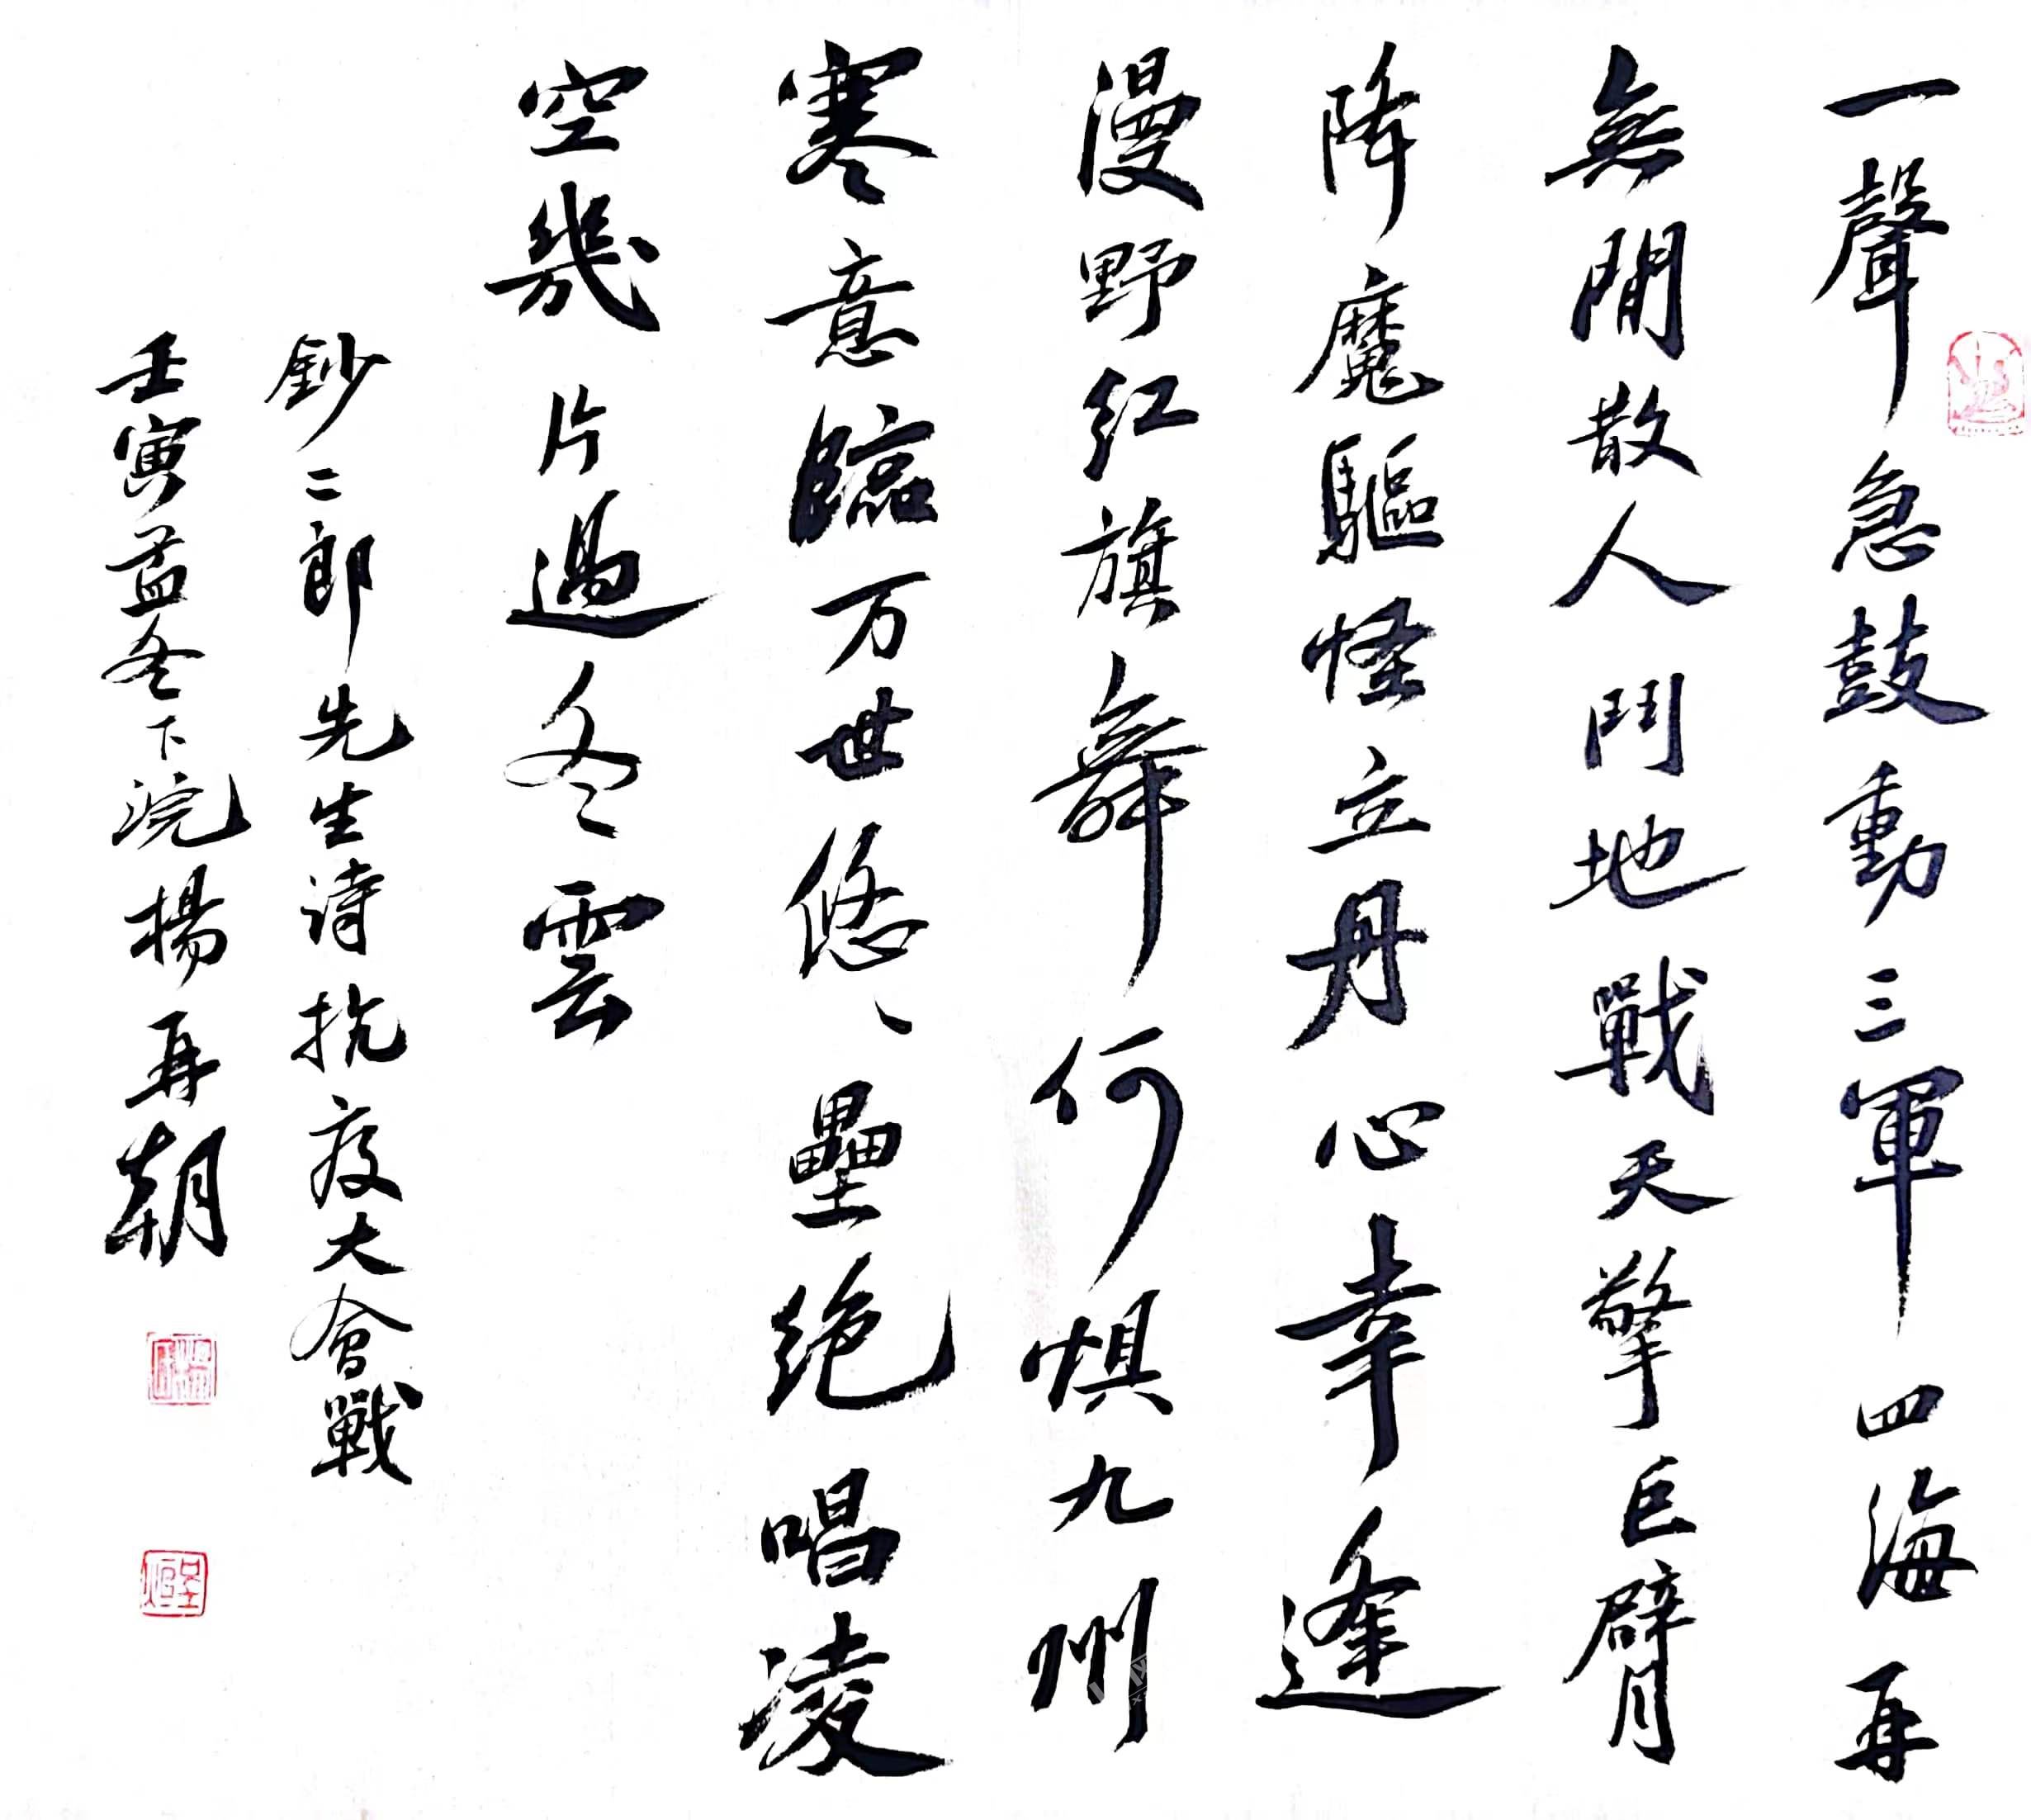 一聲急鼓動三軍四海再
無閒散人鬥地戰天擎巨臂
降魔驅怪立丹心幸逢
漫野紅旗舞何惧九州
寒意臨万世悠、壘絶唱凌
空幾片過冬雲
鈔二郎先生诗抗疫大會戰
壬寅孟冬下浣揚再朝